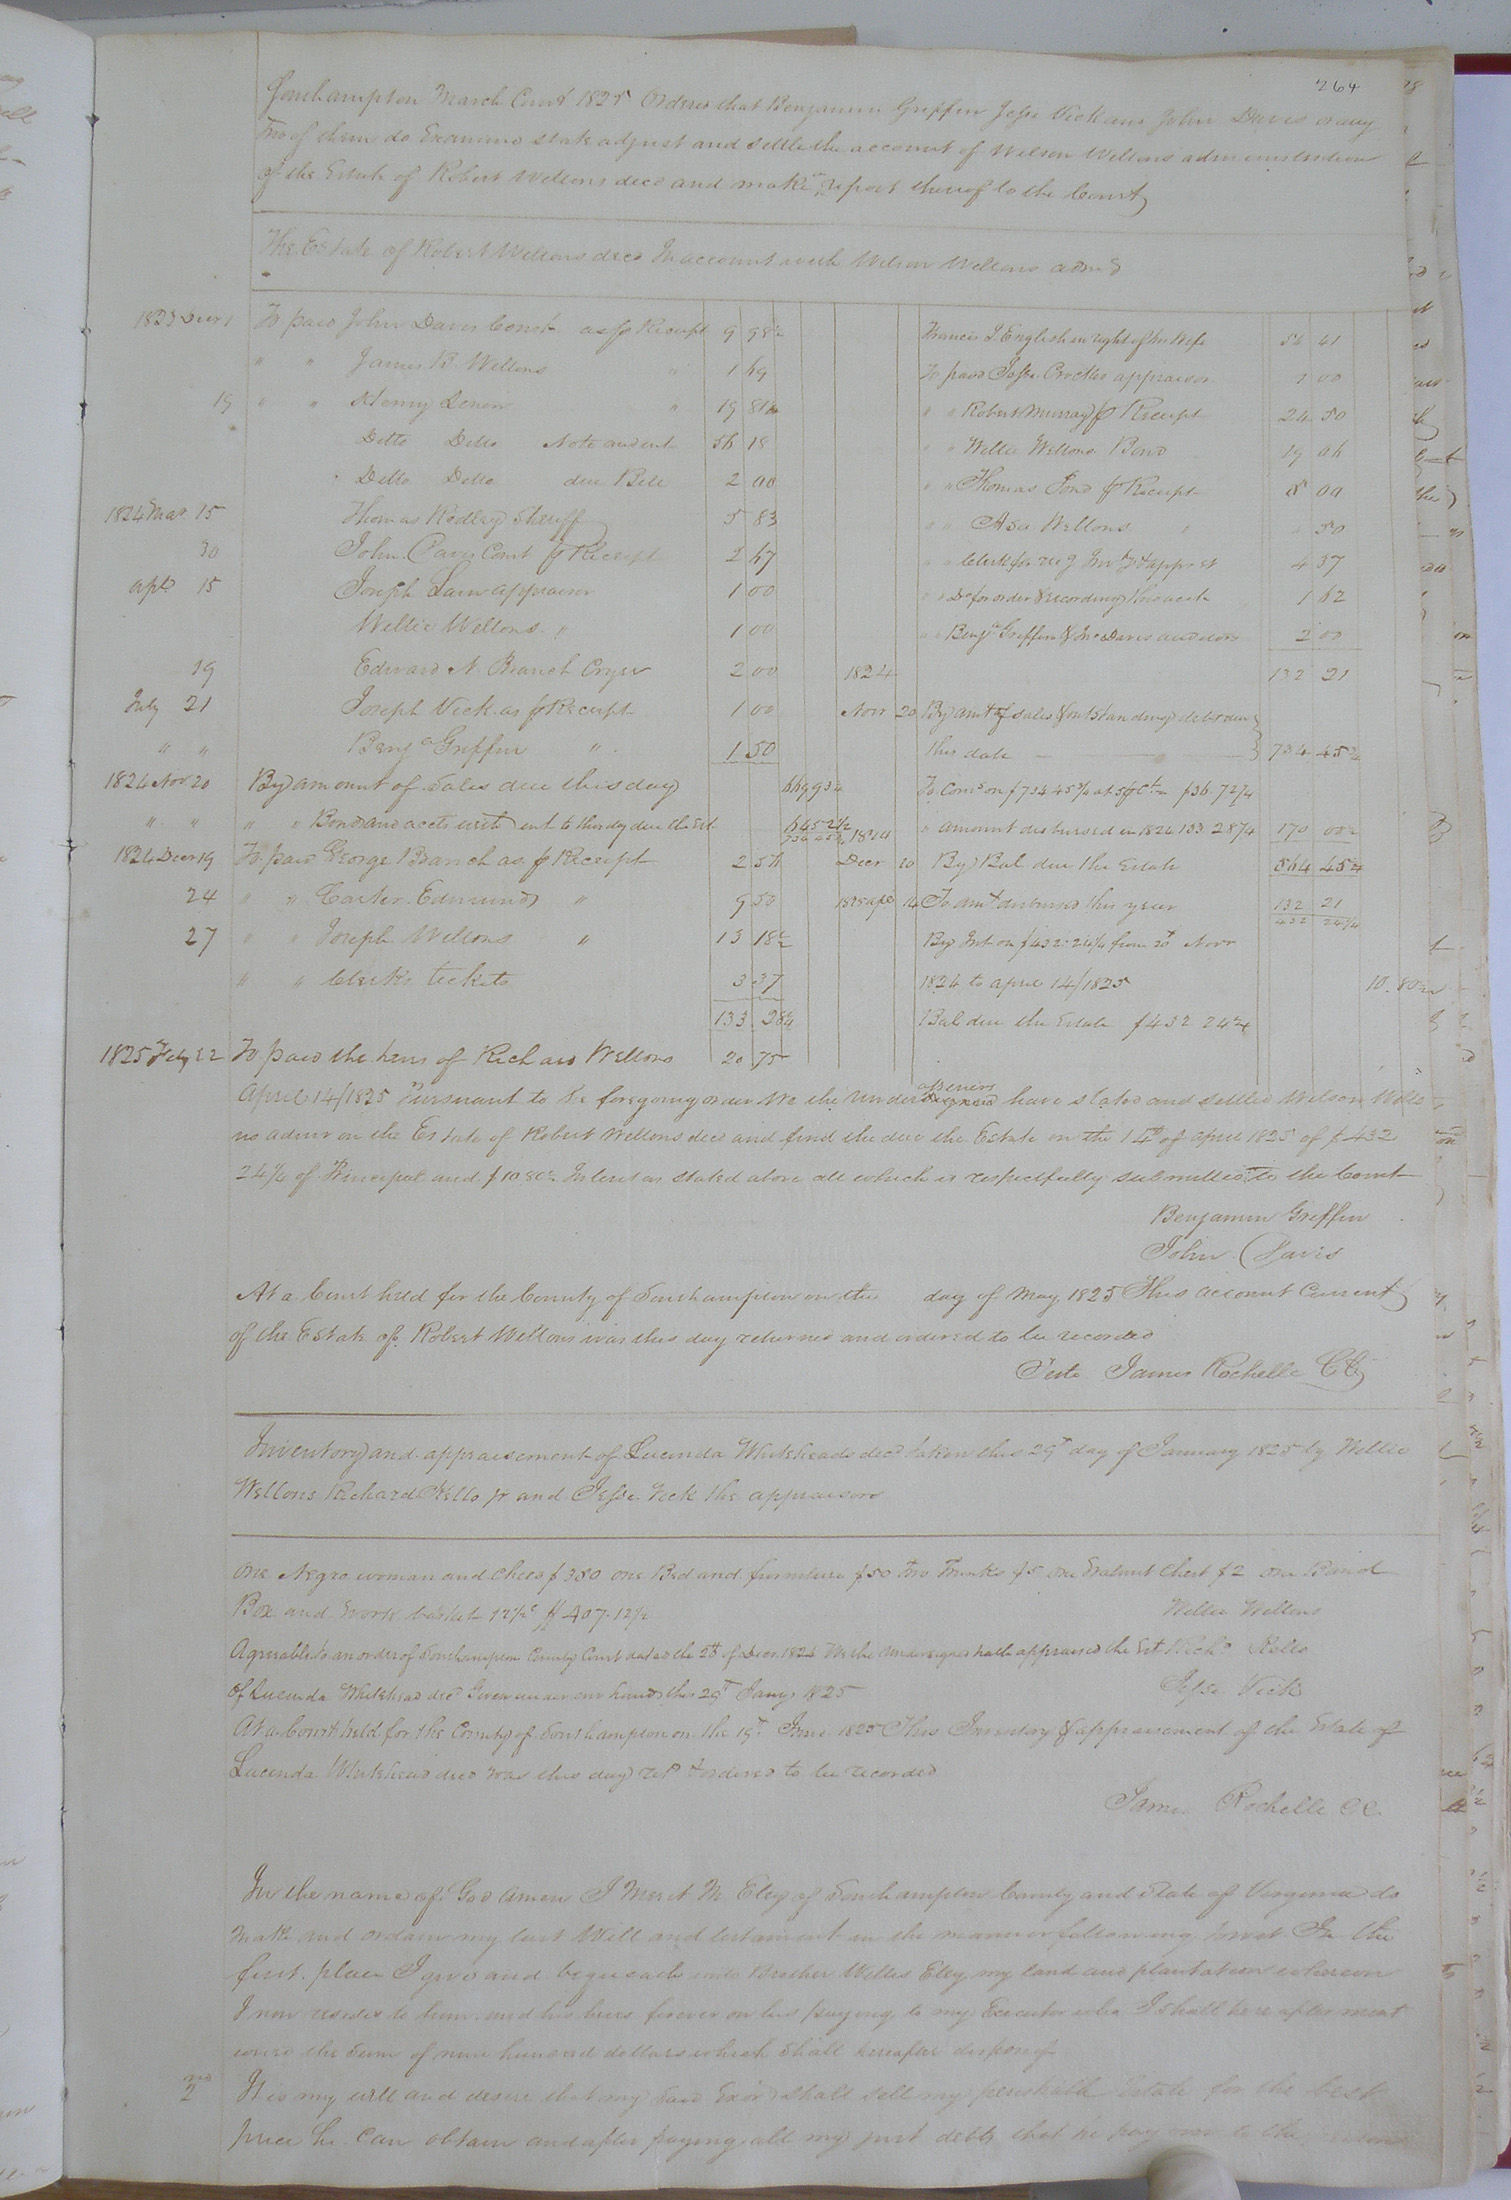 264
Southampton March Court 1825 Ordered that Benjamin Griffin Jesse Vick and John Davis or any
two of them do Examine state adjust and settle the account of Wilson Wellons administration
of the Estate of Robert Wellons decd and make report thereof to the Court
The Estate of Robert Wellons decd In account with Wilson Wellons admr
1823 Decr 1 To paid John Davis Const as pr Receipt 9 98½
" " James B Wellons " 1 69
19 " " Henry "
Ditto Ditto Note and int 56 18
Ditto Ditto due Bill 2 00
1824 Mar 15 Thomas Ridley Sheriff 5 83
30 John Davis Const pr Receipt 2 67
apl 15 Joseph Lain appraiser 1 00
Willie Wellons " 1 00
19 Edward N. Branch Cryer 2 00
July 21 Joseph Vick as pr Receipt 1 00
" " Benja Griffin " 1 50
1824 Nov 20 By amount of Sales due this day
" " " " Bonds and accts with int to this day due the Est
1824 Decr 19 To paid George Branch as pr Receipt 2 56
24 " " Carter Edmunds " 9 50
27 " " Joseph Wellons " 13 18½
" " Clerks tickets 3 37
133 28¾
1825 Feby 22 To paid the heirs of Richard Wellons 20 75
Francis J English in right of his Wife 54 41
To paid Jesse appraiser 1 00
" " Robert Murray pr Receipt 24 50
" " Willie Wellons Bond 19 06
" " Thomas Pond pr Receipt
" " Asa Wellons " 50
" " Clerk for recg Invty & apprst 4 37
" " Do for order & recording this acct 1 62
" " Benja Griffin & Jno Davis auditors 2 00
132 21
1824
Novr 20 By amt of sales & outstanding debts due
this date 734 45¾
To Coms on $734 45¾ at 5 pr Ct $36.72¼
1824 " amount disbursed in 1824 133 28¾ 170 00¾
Decr 20 By Bal due the Estate 564 45¼
1825 apl 14 To amt disbursed this year 132 21
432 24¼
By Int on $432.24¼ from 20th Novr
1824 to april 14/1825 10.80½
Bal due the Estate $432 24¼
April 14/1825 Pursuant to the foregoing order We the Under assigners have stated and settled Wilson Wello
ns admr on the Estate of Robert Wellons decd and find the due the Estate on the 14th of april 1825 of $432
24¼ of Principal and $10.80½ Interest as stated above all which is respectfully submitted to the Court
Benjamin Griffin
John Davis
At a Court held for the County of Southampton on the day of May 1825 This account Current
of the Estate of Robert Wellons was this day returned and ordered to be recorded
Teste James Rochelle CC
Inventory and appraisement of Lucinda Whiteheads decd taken this 29th day of January 1825 by Willie
Wellons Richard Kello jr and Jesse Vick the appraisors
One Negro woman and Child $350 one Bed and furniture $50 two Trunks $5 one Walnut Chest $2 one Band
Box and work basket 12½c $407.12½
Willie Wellons
Agreeable to an order of Southampton County Court dated the 20th of Decr 1824 We the Undersigned hath appraised the Est Richd Kello
of Lucinda Whitehead decd Given under our hands this 29th Jany 1825 Jesse Vick
At a Court held for the County of Southampton on the 19th June 1825 This Inventory & appraisement of the Estate of
Lucinda Whitehead decd was this day retd & ordered to be recorded
James Rochelle CC
In the name of God Amen I Merit M. Eley of Southampton County and State of Virginia do
make and ordain my last Will and testament in the manner following towit In the
first place I give and bequeath unto Brother Willis Eley my land and plantation whereon
I now reside to him and his heirs forever on his paying to my Executor who I shall hereafter ment
the Sum of nine hundred dollars which I shall hereafter dispose of
2nd It is my will and desire that my said Exor shall sell my perishable Estate for the best
price he can obtain and after paying all my just debts that he pay over to the